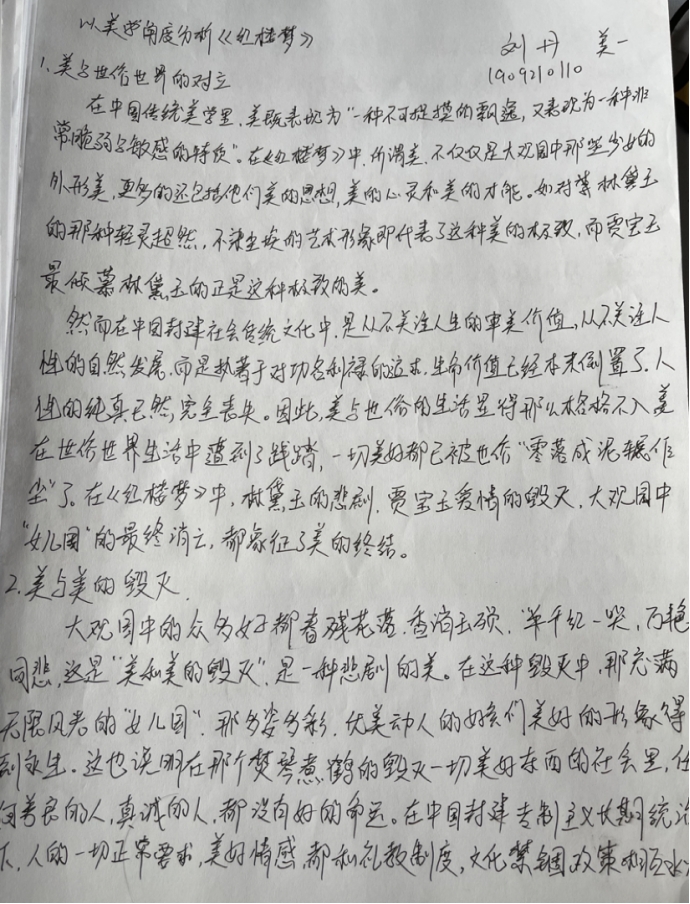 以美学角度分析《红楼梦》
刘丹 美一
1909210110
1.美与世俗世界的对立
在中国传统美学里,美既表现为“一种不可捉摸的飘逸,又表现为一种非
常脆弱与敏感的特质”。在《红楼梦》中,所谓美,不仅仅是大观园中那些少女的
外形美,更多的还包括他们美的思想,美的心灵和美的才能。如对葬林黛玉
的那种轻灵超然,不染尘埃的艺术形象即代表了这种美的极致,而贾宝玉
最倾慕林黛玉的正是这种极致的美。
然而在中国封建社会传统文化中,是从不关注人生的审美价值,从不关注人
性的自然发展,而是执著于对功名利禄的追求,生命价值已经本末倒置了,人
性的纯真已然完全丧失。因此,美与世俗的生活显得那么格格不入,美
在世俗世界生活中遭到了践踏,一切美好都已被世俗“零落成泥辗作
尘”了。在《红楼梦》中,林黛玉的悲剧,贾宝玉爱情的毁灭,大观园中
“女儿国”的最终消亡,都象征了美的终结。
2.美与美的毁灭.
大观园中的众多女子都春残花落,香消玉殒,“千红一哭,万艳
同悲,这是“美和美的毁灭”,是一种悲剧的美。在这种毁灭中,那充满
无限风光的“女儿国”,那多姿多彩,优美动人的女孩们美好的形象得
到永生。这也说明在那个焚琴煮鹤的毁灭一切美好东西的社会里,任
何善良的人,真诚的人,都没有好的命运。在中国封建专制主义长期统治
下,人的一切正常要求,美好情感,都和礼教制度,文化禁锢政策相互水